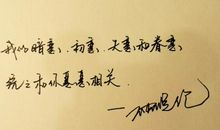 我的暗恋、初恋、失恋和眷恋
统之和你息息相关.